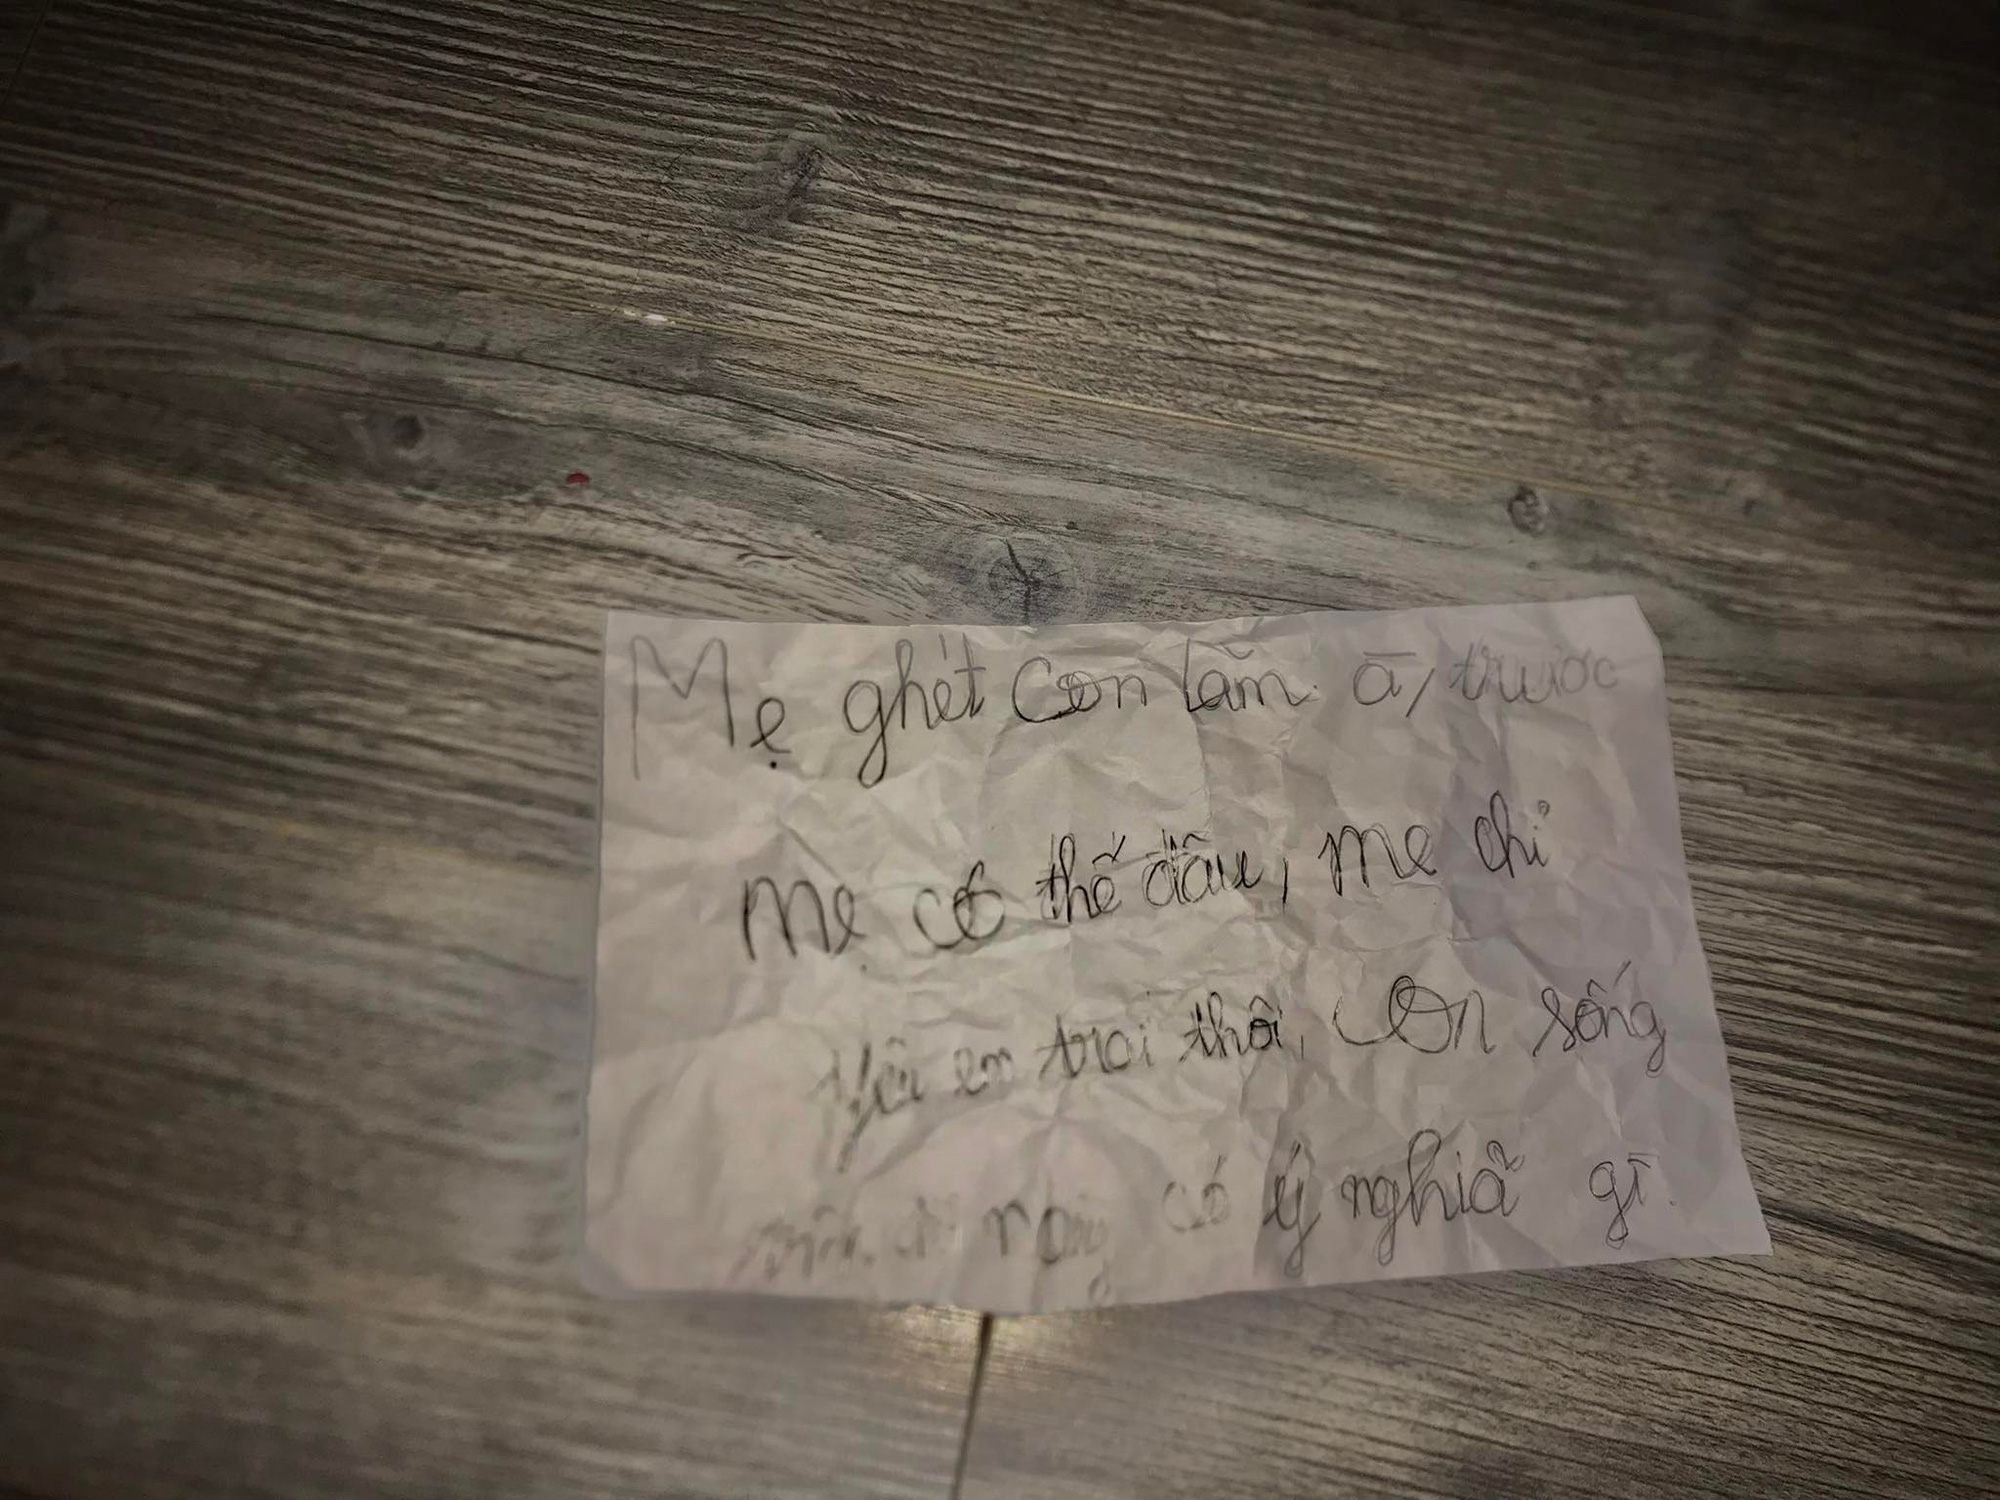 Mẹ ghét con lắm à, trước
mẹ có thế đâu, mẹ chỉ
yêu em trai thôi, con sống
trên đời này có ý nghĩa gì.